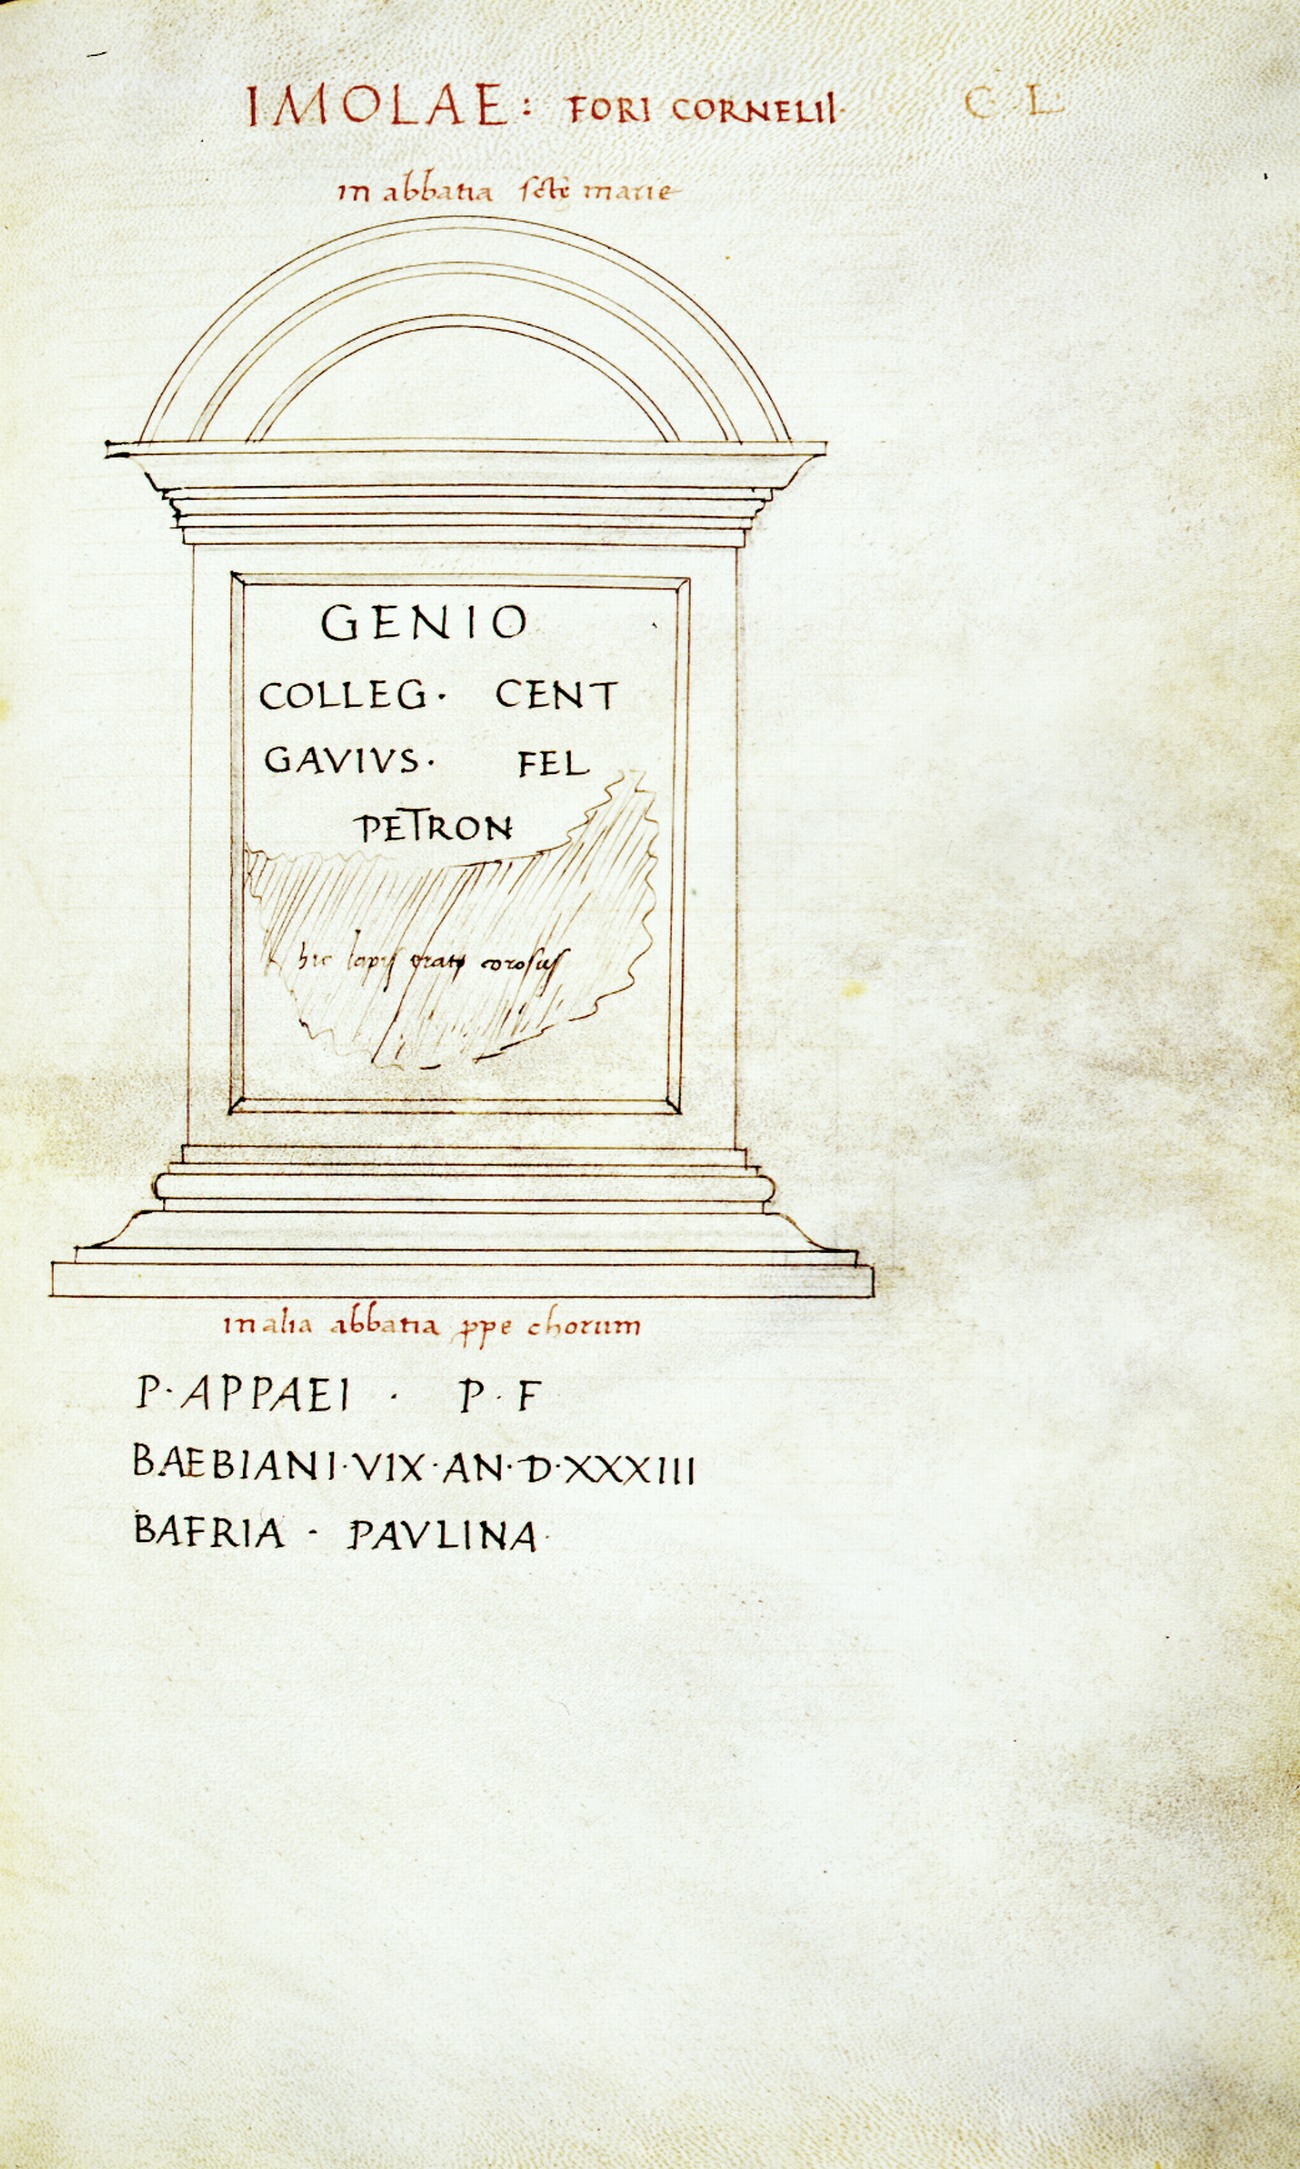 IMOLAE: FORI CORNELII· C· L·
in abbatia sctę marie
GENIO
COLLEG· CENT
GAVIVS· FEL
PETRON
hic lapis erat corosus
in alia abbatia ꝓpe chorum
P·APPAEI · P·F
BAEBIANI·VIX·AN·D·XXXIII
BAFRIA · PAVLINA·